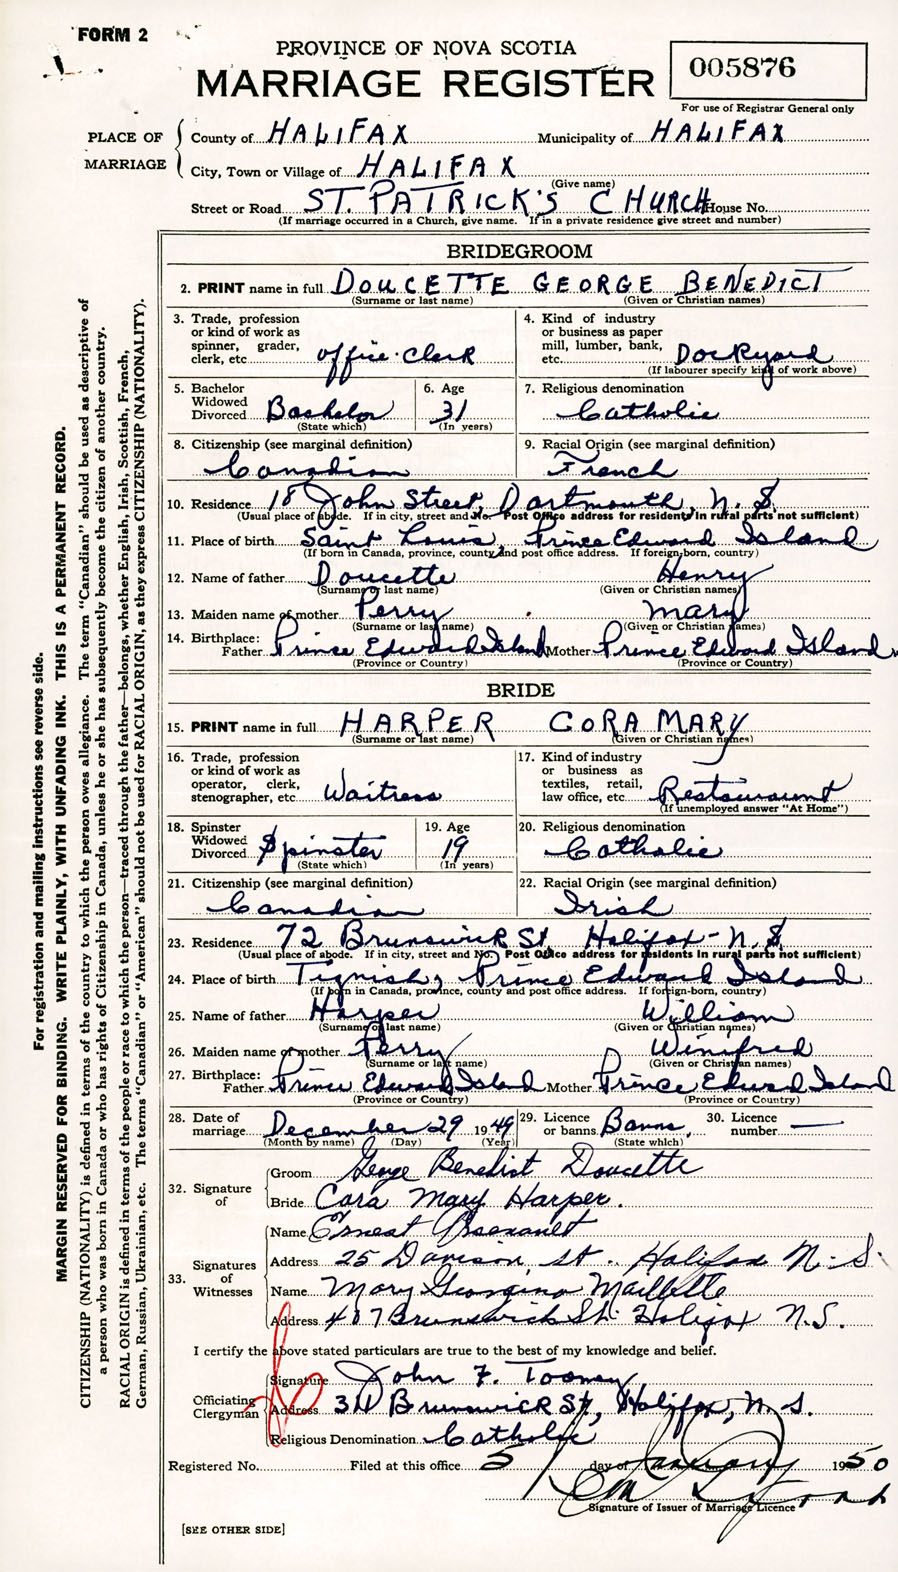 FORM 2
PROVINCE OF NOVA SCOTIA
MARRIAGE REGISTER
005876
For use of Registrar General only
PLACE OF MARRIAGE
County of HALIFAX Municipality of HALIFAX
City, Town or Village of HALIFAX
(Give name)
Street or Road ST. PATRICK'S CHURCH House No.
(If marriage occurred in a Church, give name. If in a private residence give street and number)
BRIDEGROOM
2. PRINT name in full DOUCETTE GEORGE BENEDICT
(Surname or last name) (Given or Christian names)
3. Trade, profession or kind of work as spinner, grader, clerk, etc. office clerk
4. Kind of industry or business as paper mill, lumber, bank, etc. Dockyard
(If labourer specify kind of work above)
5. Bachelor Widowed Divorced Bachelor
(State which)
6. Age 31
(In years)
7. Religious denomination
Catholic
8. Citizenship (see marginal definition)
Canadian
9. Racial Origin (see marginal definition)
French
10. Residence 18 John Street, Dartmouth, N.S.
(Usual place of abode. If in city, street and No. Post Office address for residents in rural parts not sufficient)
11. Place of birth Saint Louis, Prince Edward Island
(If born in Canada, province, county and post office address. If foreign-born, country)
12. Name of father Doucette Henry
(Surname or last name) (Given or Christian names)
13. Maiden name of mother Perry Mary
(Surname or last name) (Given or Christian names)
14. Birthplace: Father Prince Edward Island Mother Prince Edward Island
(Province or Country) (Province or Country)
BRIDE
15. PRINT name in full HARPER CORA MARY
(Surname or last name) (Given or Christian names)
16. Trade, profession or kind of work as operator, clerk, stenographer, etc. Waitress
17. Kind of industry or business as textiles, retail, law office, etc. Restaurant
(If unemployed answer "At Home")
18. Spinster Widowed Divorced Spinster
(State which)
19. Age 19
(In years)
20. Religious denomination
Catholic
21. Citizenship (see marginal definition)
Canadian
22. Racial Origin (see marginal definition)
Irish
23. Residence 72 Brunswick St Halifax - N.S.
(Usual place of abode. If in city, street and No. Post Office address for residents in rural parts not sufficient)
24. Place of birth Tignish, Prince Edward Island
(If born in Canada, province, county and post office address. If foreign-born, country)
25. Name of father Harper William
(Surname or last name) (Given or Christian names)
26. Maiden name of mother Perry Winifred
(Surname or last name) (Given or Christian names)
27. Birthplace: Father Prince Edward Island Mother Prince Edward Island
(Province or Country) (Province or Country)
28. Date of marriage December 29 1949
(Month by name) (Day) (Year)
29. Licence or banns Banns,
(State which)
30. Licence number —
32. Signature of
Groom George Benedict Doucette
Bride Cora Mary Harper.
33. Signatures of Witnesses
Name Ernest Arsenault
Address 25 Davison, st. Halifax N-S.
Name Mary Georgina Maillette
Address 407 Brunswick St. Halifax N.S.
I certify the above stated particulars are true to the best of my knowledge and belief.
Officiating Clergyman
Signature John F. Toomey
Address Brunswick St, Halifax, N.S.
Religious Denomination Catholic
Registered No. Filed at this office 5 day of January 1950
Signature of Issuer of Marriage Licence
[SEE OTHER SIDE]
For registration and mailing instructions see reverse side.
MARGIN RESERVED FOR BINDING. WRITE PLAINLY, WITH UNFADING INK. THIS IS A PERMANENT RECORD.
CITIZENSHIP (NATIONALITY) is defined in terms of the country to which the person owes allegiance. The term "Canadian" should be used as descriptive of
a person who was born in Canada or who has rights of Citizenship in Canada, unless he or she has subsequently become the citizen of another country.
RACIAL ORIGIN is defined in terms of the people or race to which the person—traced through the father—belongs, whether English, Irish, Scottish, French,
German, Russian, Ukrainian, etc. The terms "Canadian" or "American" should not be used for RACIAL ORIGIN, as they express CITIZENSHIP (NATIONALITY).